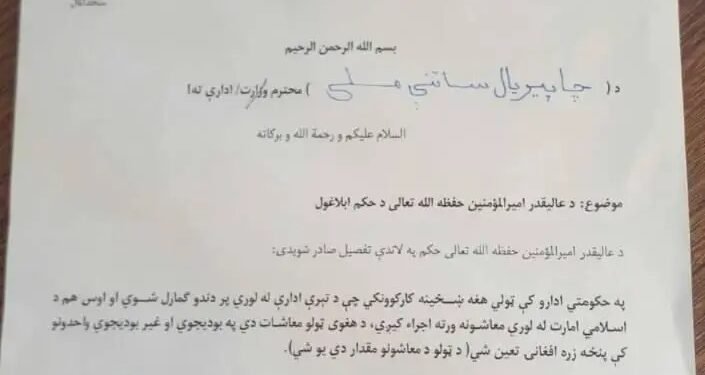 بسم الله الرحمن الرحیم
د( چاپیریال ساتنې ملي ) محترم وزارت/ ادارې ته!
السلام علیکم و رحمة الله و برکاته
موضوع: د عالیقدر امیرالمؤمنین حفظه الله تعالی د حکم ابلاغول
د عالیقدر امیرالمؤمنین حفظه الله تعالی حکم په لاندې تفصیل صادر شویدی:
په حکومتي ادارو کې ټولې هغه ښځینه کارکوونکې چې د تېرې ادارې له لورې پر دندو ګمارل شوي او اوس هم د
اسلامي امارت له لوري معاشونه ورته اجراء کیږي، د هغوی ټولو معاشات دې په بودیجوي او غیر بودیجوي واحدونو
کې پنځه زره افغانی تعین شي( د ټولو د معاشونو مقدار دې یو شي).